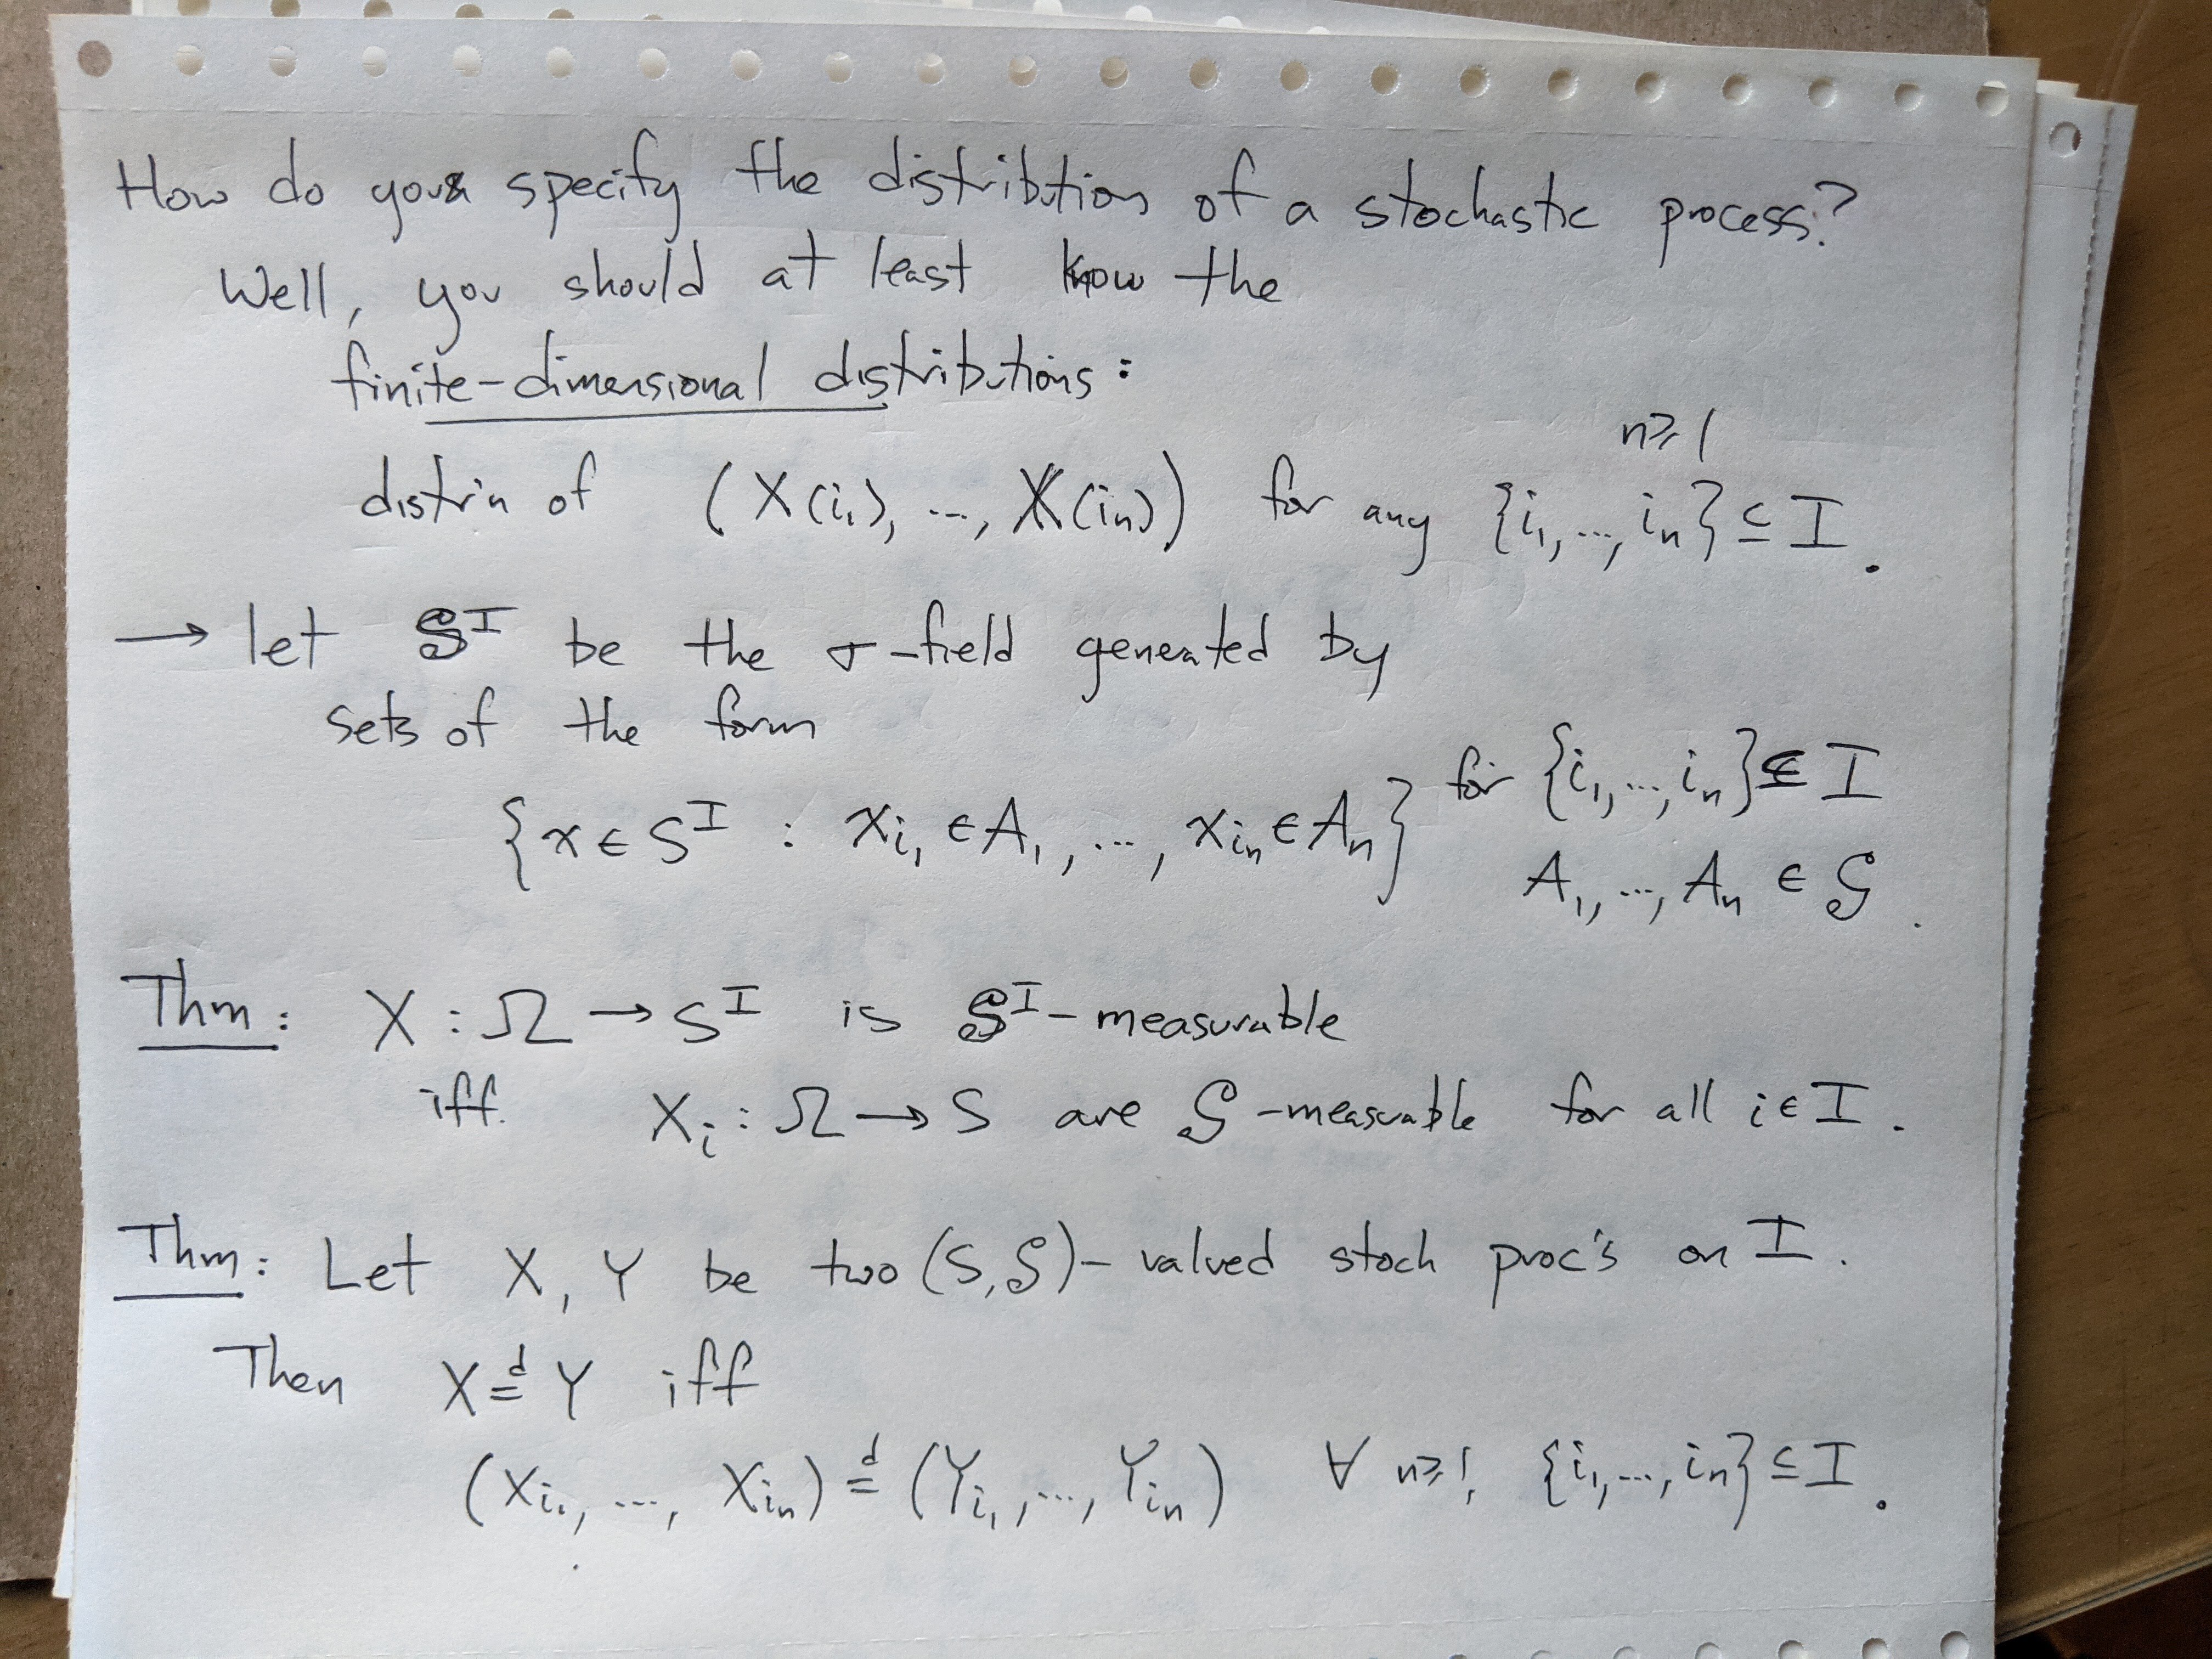 How do you specify the distribution of a stochastic process?
Well, you should at least know the
finite-dimensional distributions:
n ≥ 1
distr'n of (X(i₁), ..., X(iₙ)) for any {i₁, ..., iₙ} ⊆ I.
→ let 𝒮ᴵ be the σ-field generated by
sets of the form
{x ∈ Sᴵ : x_{i₁} ∈ A₁, ..., x_{iₙ} ∈ Aₙ} for {i₁, ..., iₙ} ⊆ I
A₁, ..., Aₙ ∈ 𝒮.
Thm: X : Ω → Sᴵ is 𝒮ᴵ-measurable
iff. Xᵢ : Ω → S are 𝒮-measurable for all i ∈ I.
Thm: Let X, Y be two (S, 𝒮)-valued stoch proc's on I.
Then X =ᵈ Y iff
(X_{i₁}, ..., X_{iₙ}) =ᵈ (Y_{i₁}, ..., Y_{iₙ}) ∀ n ≥ 1, {i₁, ..., iₙ} ⊆ I.